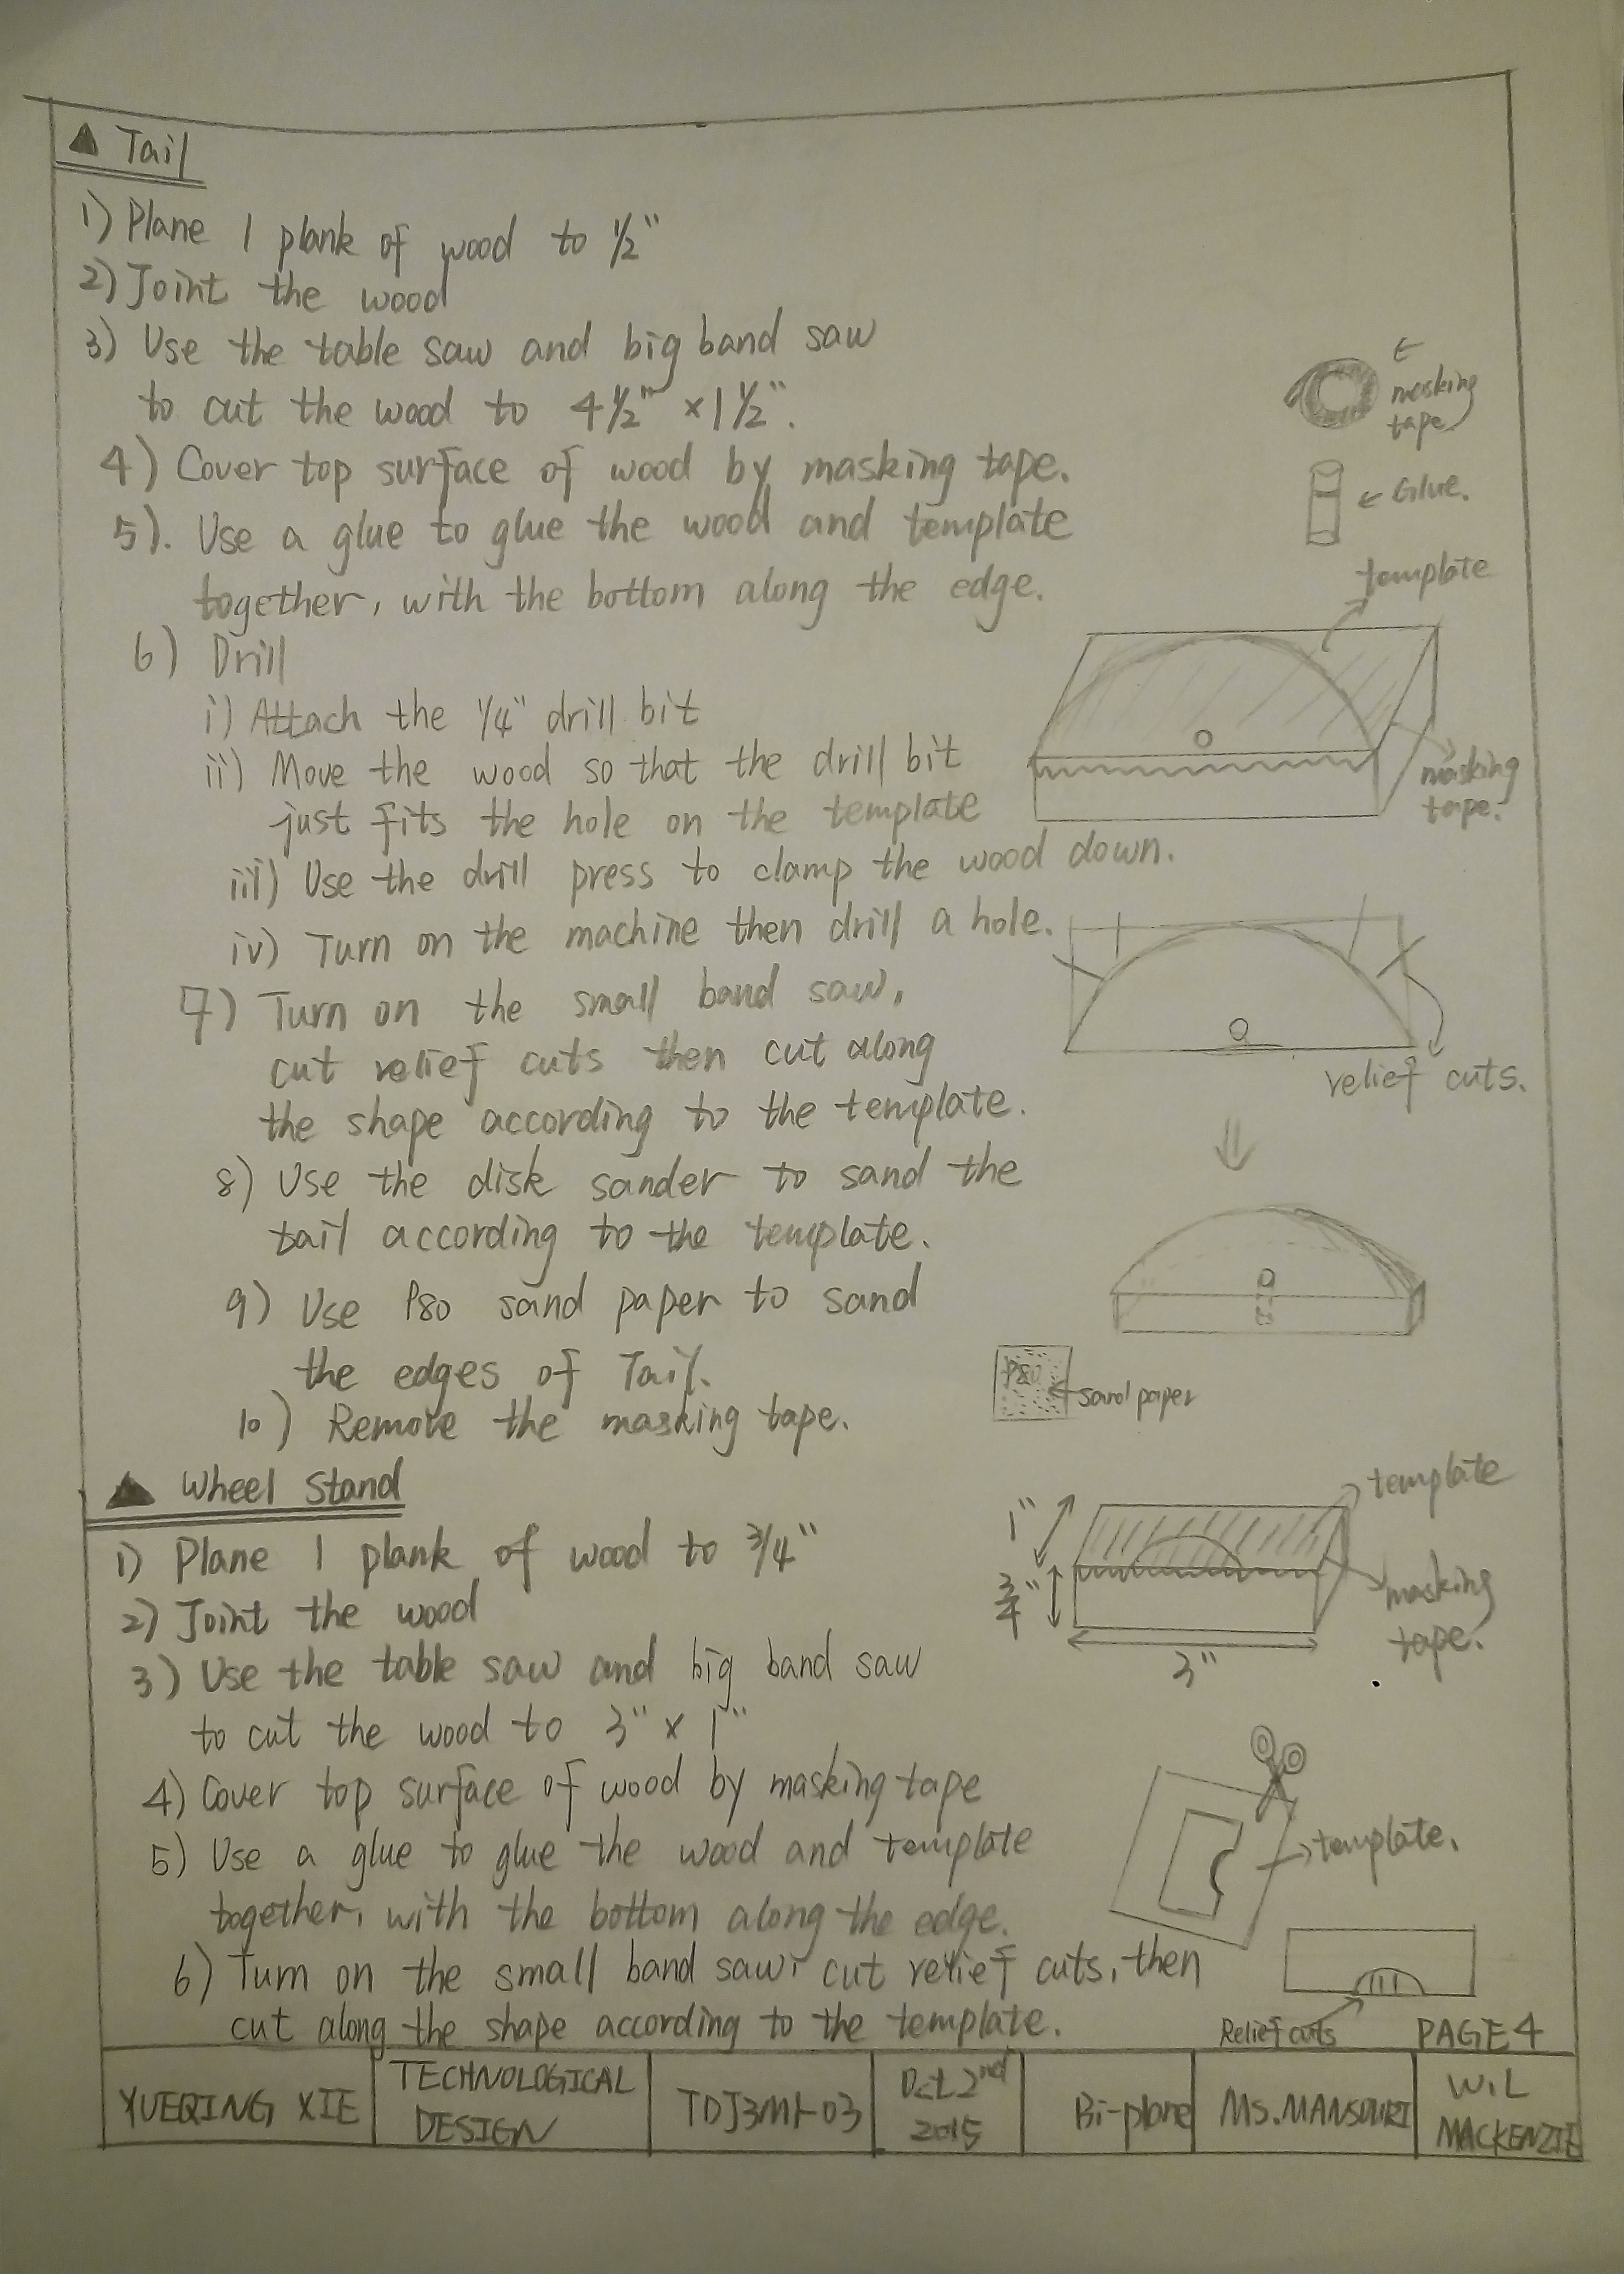 ▲ Tail
1) Plane 1 plank of wood to 1/2"
2) Joint the wood
3) Use the table saw and big band saw
to cut the wood to 4 1/2" x 1 1/2".
masking
tape
4) Cover top surface of wood by masking tape.
Glue.
5). Use a glue to glue the wood and template
together, with the bottom along the edge.
template
6) Drill
i) Attach the 1/4" drill bit
ii) Move the wood so that the drill bit
just fits the hole on the template
masking
tape.
iii) Use the drill press to clamp the wood down.
iv) Turn on the machine then drill a hole.
7) Turn on the small band saw,
cut relief cuts then cut along
the shape according to the template.
relief cuts.
8) Use the disk sander to sand the
tail according to the template.
9) Use P80 sand paper to sand
the edges of Tail.
P80
sand paper
10) Remove the masking tape.
▲ Wheel Stand
template
1"
3/4"
3"
masking
tape.
1) Plane 1 plank of wood to 3/4"
2) Joint the wood
3) Use the table saw and big band saw
to cut the wood to 3" x 1"
4) Cover top surface of wood by masking tape
template.
5) Use a glue to glue the wood and template
together, with the bottom along the edge.
6) Turn on the small band saw, cut relief cuts, then
cut along the shape according to the template.
Relief cuts
PAGE 4
YUEQING XIE
TECHNOLOGICAL
DESIGN
TDJ3M1-03
Oct 2nd
2015
Bi-plane
Ms. MANSOURI
W.L
MACKENZIE